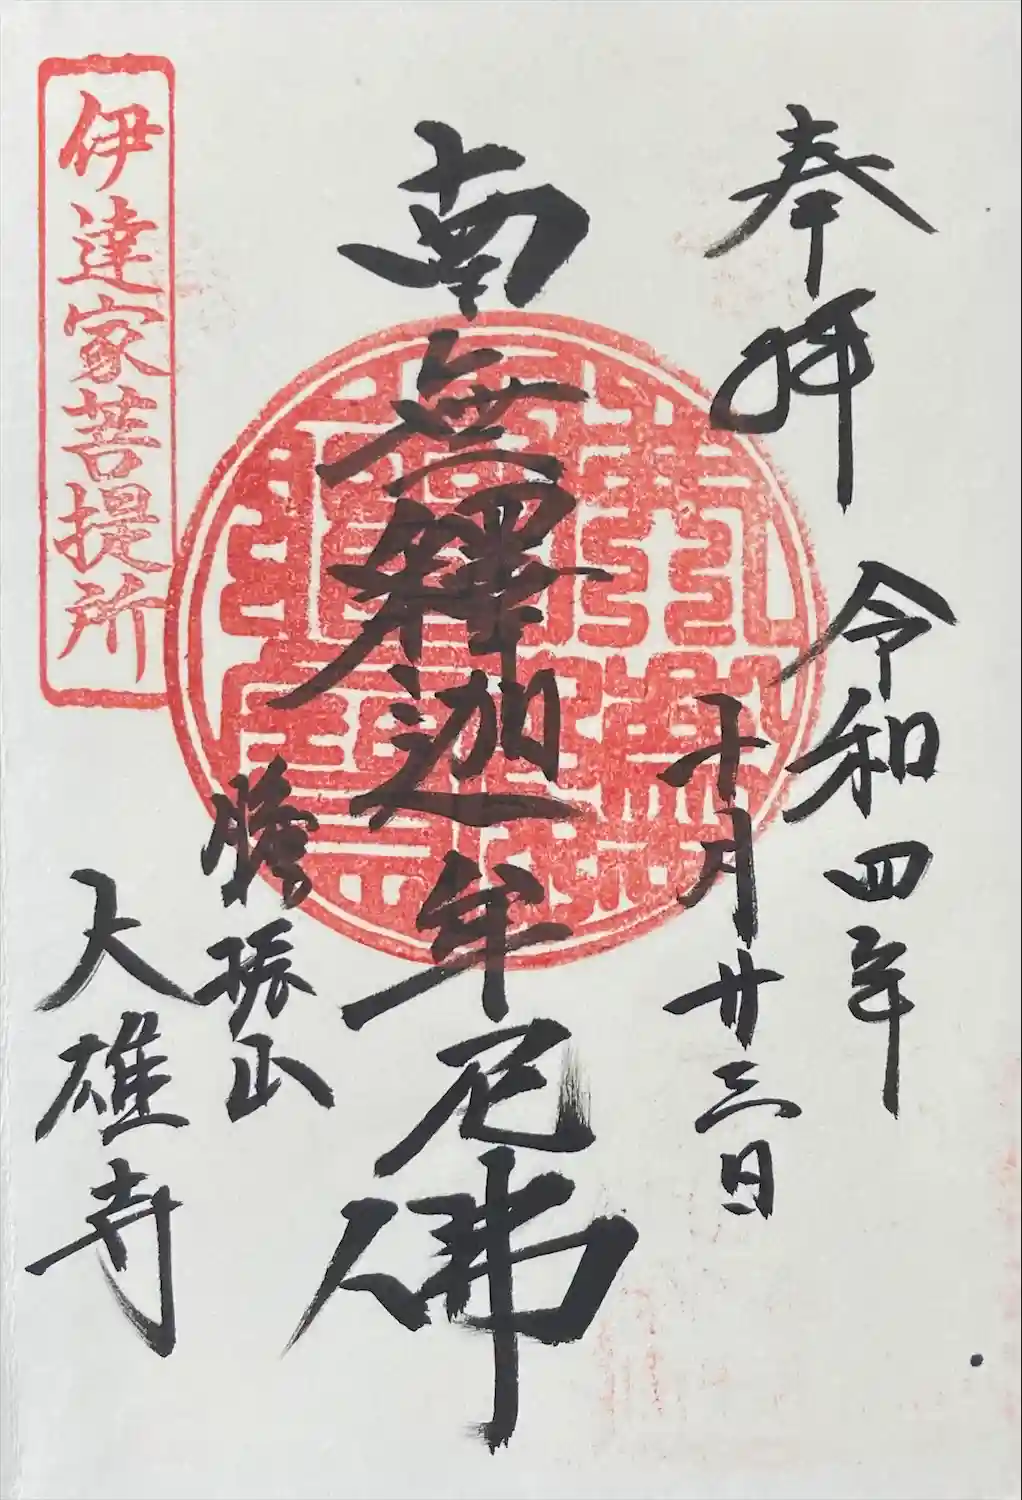 奉拝
令和四年
十月廿三日
南無釋迦牟尼佛
山
大雄寺
伊達家菩提所